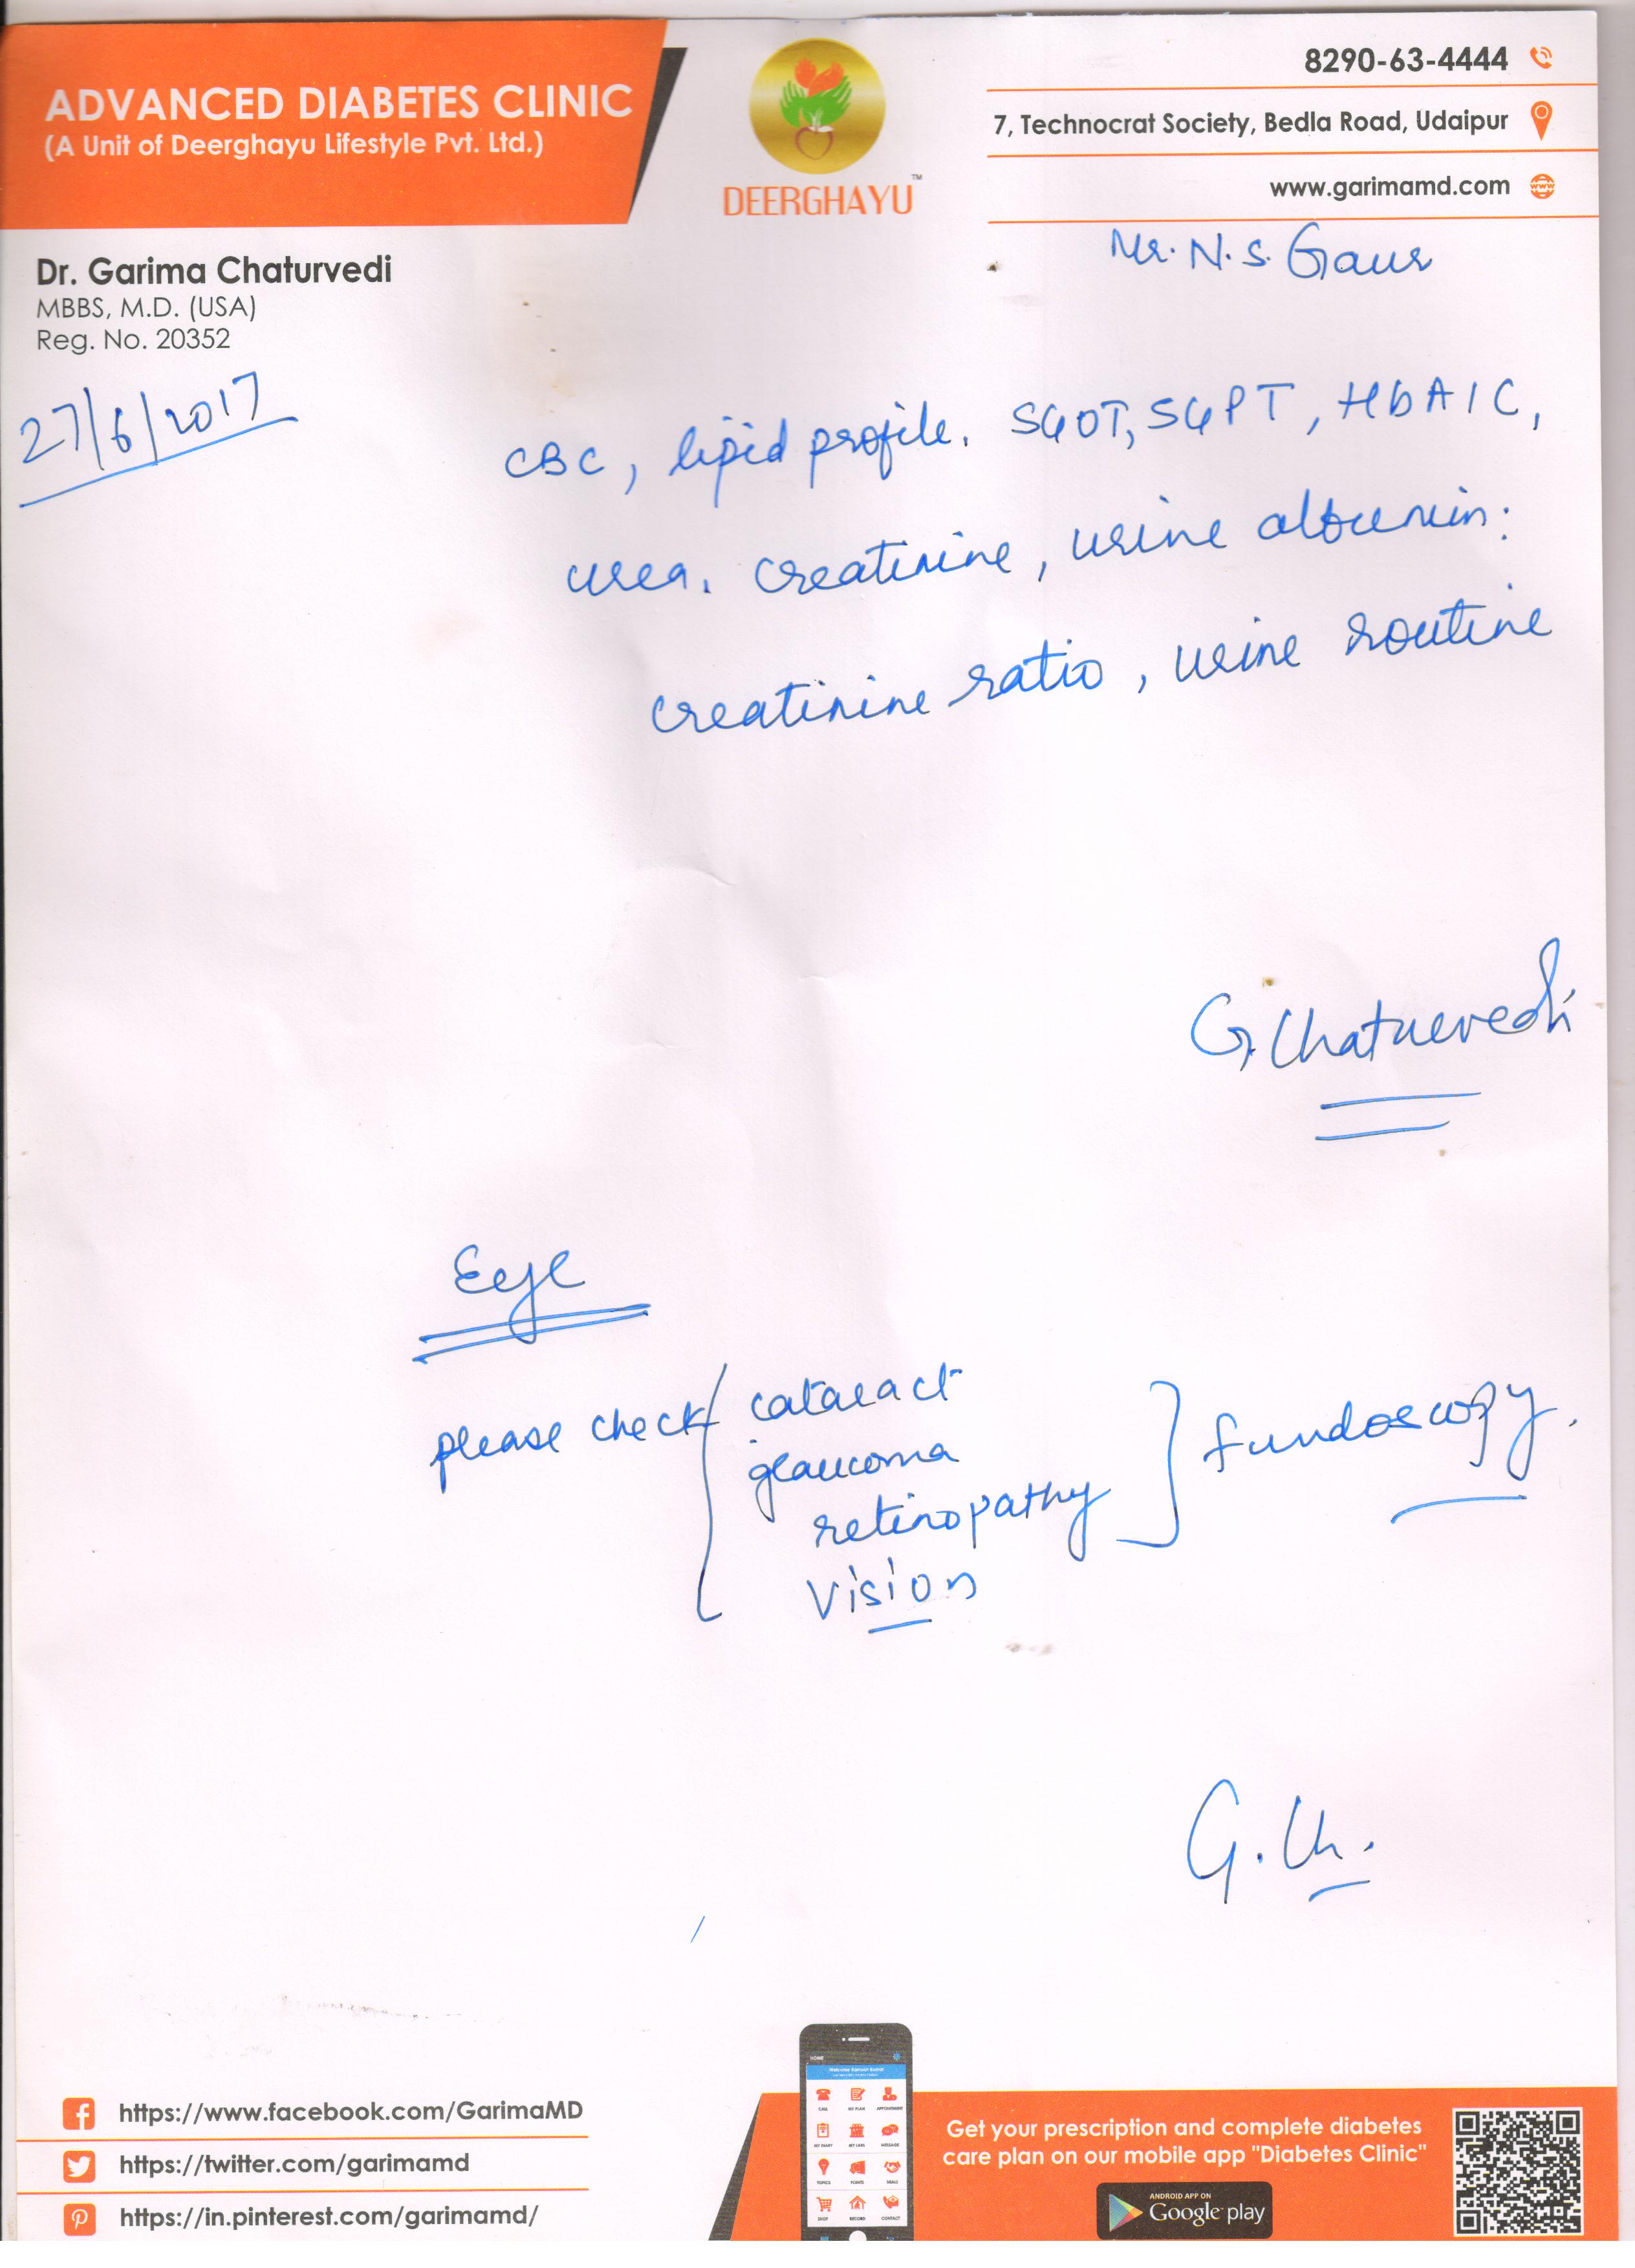 ADVANCED DIABETES CLINIC
(A Unit of Deerghayu Lifestyle Pvt. Ltd.)
DEERGHAYU™
8290-63-4444
7, Technocrat Society, Bedla Road, Udaipur
www.garimamd.com
Dr. Garima Chaturvedi
MBBS, M.D. (USA)
Reg. No. 20352
Mr. N.S. Gaur
27/6/2017
CBC, lipid profile, SGOT, SGPT, HbA1C,
urea, creatinine, urine albumin:
creatinine ratio, urine routine
G. Chaturvedi
Eye
please check
cataract
glaucoma
retinopathy
vision
fundoscopy.
G. Ch.
https://www.facebook.com/GarimaMD
https://twitter.com/garimamd
https://in.pinterest.com/garimamd/
HOME
CALL MY PLAN APPOINTMENT
MY DIARY MY LABS MESSAGE
TOPICS POINTS DEALS
SHOP RECORD CONTACT
Get your prescription and complete diabetes
care plan on our mobile app "Diabetes Clinic"
ANDROID APP ON
Google play